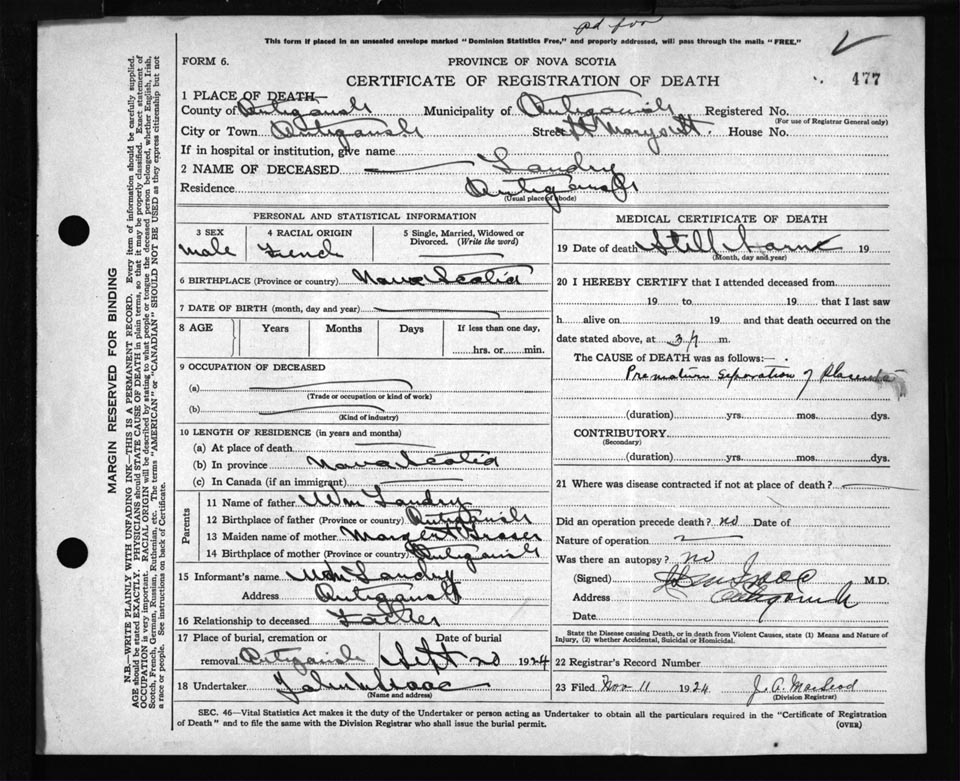 pd for
This form if placed in an unsealed envelope marked "Dominion Statistics Free," and properly addressed, will pass through the mails "FREE."
FORM 6.
PROVINCE OF NOVA SCOTIA
CERTIFICATE OF REGISTRATION OF DEATH
477
1 PLACE OF DEATH—
County of Antigonish Municipality of Antigonish Registered No.
(For use of Registrar General only)
City or Town Antigonish Street St Marys St. House No.
If in hospital or institution, give name
2 NAME OF DECEASED Landry
Residence Antigonish
(Usual place of abode)
PERSONAL AND STATISTICAL INFORMATION
3 SEX
Male
4 RACIAL ORIGIN
French
5 Single, Married, Widowed or Divorced. (Write the word)
6 BIRTHPLACE (Province or country) Nova Scotia
7 DATE OF BIRTH (month, day and year)
8 AGE Years Months Days If less than one day,
hrs. or min.
9 OCCUPATION OF DECEASED
(a)
(Trade or occupation or kind of work)
(b)
(Kind of industry)
10 LENGTH OF RESIDENCE (in years and months)
(a) At place of death
(b) In province Nova Scotia
(c) In Canada (if an immigrant)
Parents
11 Name of father Wm Landry
12 Birthplace of father (Province or country) Antigonish
13 Maiden name of mother Margaret Fraser
14 Birthplace of mother (Province or country) Antigonish
15 Informant's name Wm Landry
Address Antigonish
16 Relationship to deceased Father
17 Place of burial, cremation or Date of burial
removal Antigonish Sept 20 1924
18 Undertaker John Isaac
(Name and address)
MEDICAL CERTIFICATE OF DEATH
19 Date of death Still borne 19
(Month, day and year)
20 I HEREBY CERTIFY that I attended deceased from
19 to 19 that I last saw
h alive on 19 and that death occurred on the
date stated above, at m.
The CAUSE of DEATH was as follows:—
Premature Seporation of Placenta
(duration) yrs. mos. dys.
CONTRIBUTORY
(Secondary)
(duration) yrs. mos. dys.
21 Where was disease contracted if not at place of death?
Did an operation precede death? no Date of
Nature of operation
Was there an autopsy? no
(Signed) M.D.
Address Antigonish
Date
State the Disease causing Death, or in death from Violent Causes, state (1) Means and Nature of
Injury, (2) whether Accidental, Suicidal or Homicidal.
22 Registrar's Record Number
23 Filed Nov 11 1924 J. A. MacLeod
(Division Registrar)
SEC. 46—Vital Statistics Act makes it the duty of the Undertaker or person acting as Undertaker to obtain all the particulars required in the "Certificate of Registration
of Death" and to file the same with the Division Registrar who shall issue the burial permit.
(OVER)
MARGIN RESERVED FOR BINDING
N.B.—WRITE PLAINLY WITH UNFADING INK—THIS IS A PERMANENT RECORD. Every item of information should be carefully supplied.
AGE should be stated EXACTLY. PHYSICIANS should STATE CAUSE OF DEATH in plain terms, so that it may be properly classified. Exact statement of
OCCUPATION is very important. RACIAL ORIGIN will be described by stating to what people or tongue the deceased person belonged, whether English, Irish,
Scotch, French, German, Russian, Ruthenian, etc. The terms "AMERICAN" or "CANADIAN" SHOULD NOT BE USED as they express citizenship but not
a race or people. See instructions on back of Certificate.